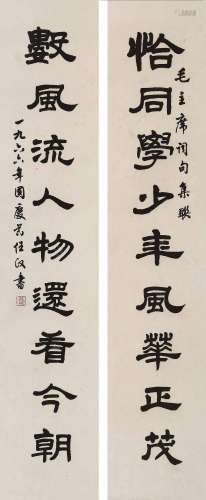 恰同學少年風華正茂
毛主席詞句集聯
數風流人物還看今朝
一九六六年國慶前任政書